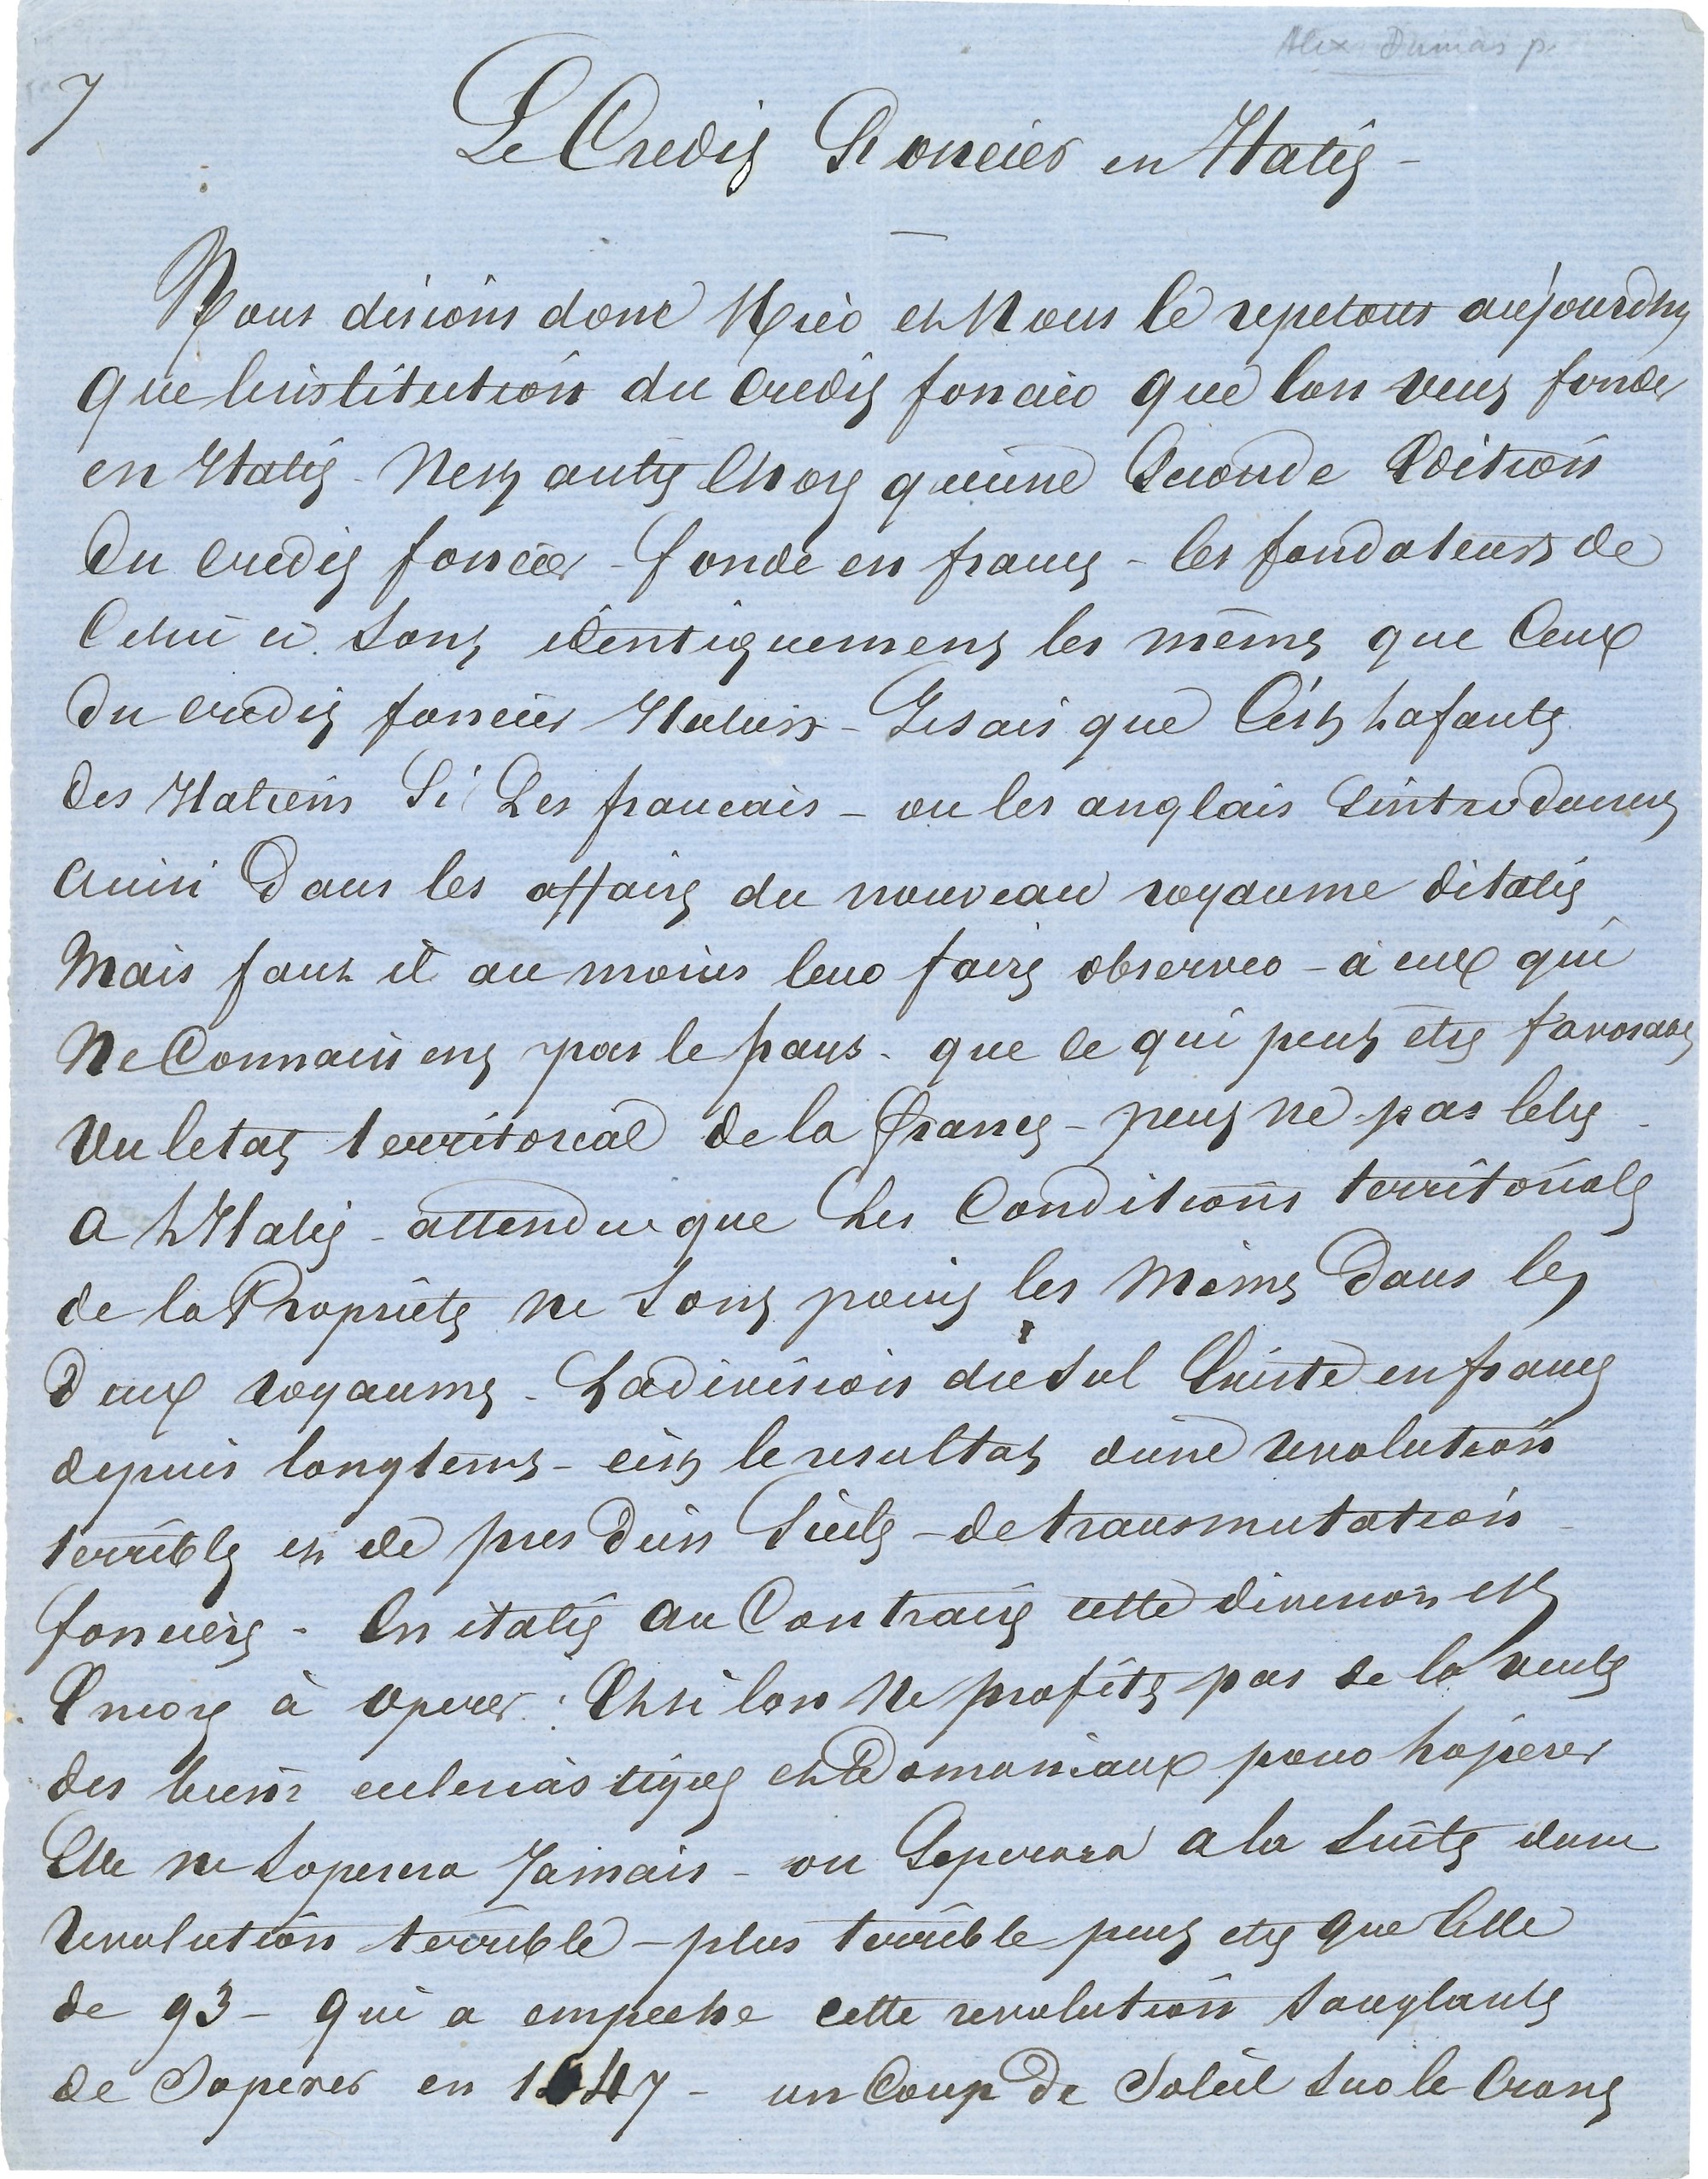 Alex Dumas p.
7
Le Credit Foncier en Italie -
Nous disions donc hier et Nous le repetons aujourdhui
que linstitution du credit foncier que lon veut fonder
en Italie - Nest autre Chose quune Seconde Edition
Du credit foncier - fondé en france - les fondateurs de
Celui ci sont identiquement les mêmes que Ceux
Du credit foncier Italien - Je sais que C'est la faute
Des Italiens Si Les francais - ou les anglais Sintroduisent
Ainsi Dans les affaires du nouveau royaume ditalie
Mais faut il au moins leur faire observer - a eux qui
Ne Connaissent pas le pays - que ce qui peut etre favorable
Vu letat territorial de la france - peut ne pas letre
a LItalie - attendu que Les Conditions territoriales
de la Propriete ne sont point les Mêmes Dans les
Deux royaumes - La division du Sol Existe en france
depuis longtems - c'est le resultat d'une revolution
terrible et de pres D'un Siecle - de transmutation
fonciere - En italie au Contraire cette division est
Encore à operer : Et si lon Ne profite pas de la vente
des biens eclesiastiques et Domaniaux pour loperer
Elle ne soperera Jamais - ou Soperera a la suite dune
Revolution terrible - plus terrible peut etre que Celle
de 93 - qui a empeche cette revolution sanglante
de Soperer en 1847 - un Coup De Soleil sur le Crane